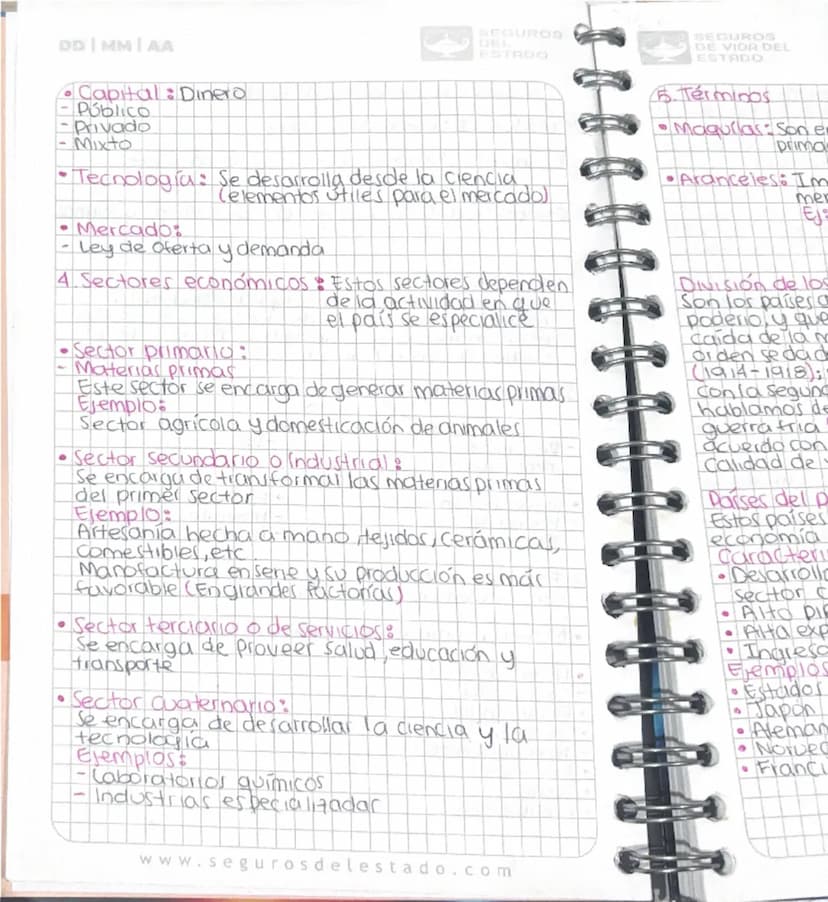 DD | MM | AA
SEGUROS
DEL
ESTADO
• Capital: Dinero
- Público
- Privado
- Mixto
• Tecnología: Se desarrolla desde la ciencia
(elementos útiles para el mercado)
• Mercado:
- Ley de Oferta y demanda
4. Sectores económicos: Estos sectores dependen
de la actividad en que
el país se especialice
• Sector primario:
- Materias primas
Este sector se encarga de generar materias primas
Ejemplo:
Sector agrícola y domesticación de animales
• Sector secundario o Industrial:
Se encarga de transformar las materias primas
del primer sector
Ejemplo:
Artesanía hecha a mano, tejidos, cerámicas,
comestibles, etc
Manofactura en serie y su producción es más
favorable (En grandes factorías)
• Sector terciario o de servicios:
Se encarga de proveer salud, educación y
transporte
• Sector cuaternario:
Se encarga de desarrollar la ciencia y la
tecnología
Ejemplos:
- Laboratorios químicos
- Industrias especializadas
www.segurosdelestado.com
SEGUROS
DE VIDA DEL
ESTADO
5. Términos
• Maquilas: Son
• Aranceles:
División de los
Son los países
poderío, y que
caída de la
orden se da
(1914-1918);
con la
hablamos de
guerra fría
acuerdo con
calidad de
Países del
Estos países
economía
• 
sector
• Alto
• Alta
• 
Ejemplos
• Estados
• Japón